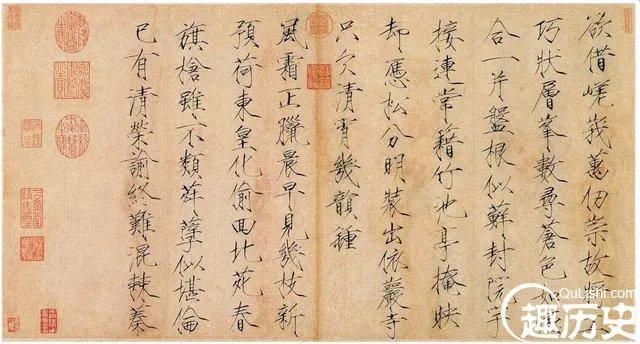 欲借嵯峩萬仞崇故將工
巧狀層峯數尋蒼色如
合一片盤根似蘚封院宇
接連常籍竹池亭掩映
却憑松分明裝出依巖寺
只欠清宵幾韻鍾
風霜正臘晨早見幾枝新
預荷東皇化偷回北苑春
旗槍雖不類荈孽似堪倫
已有清榮諭終難混棘榛
QuLishi.com
趣历史